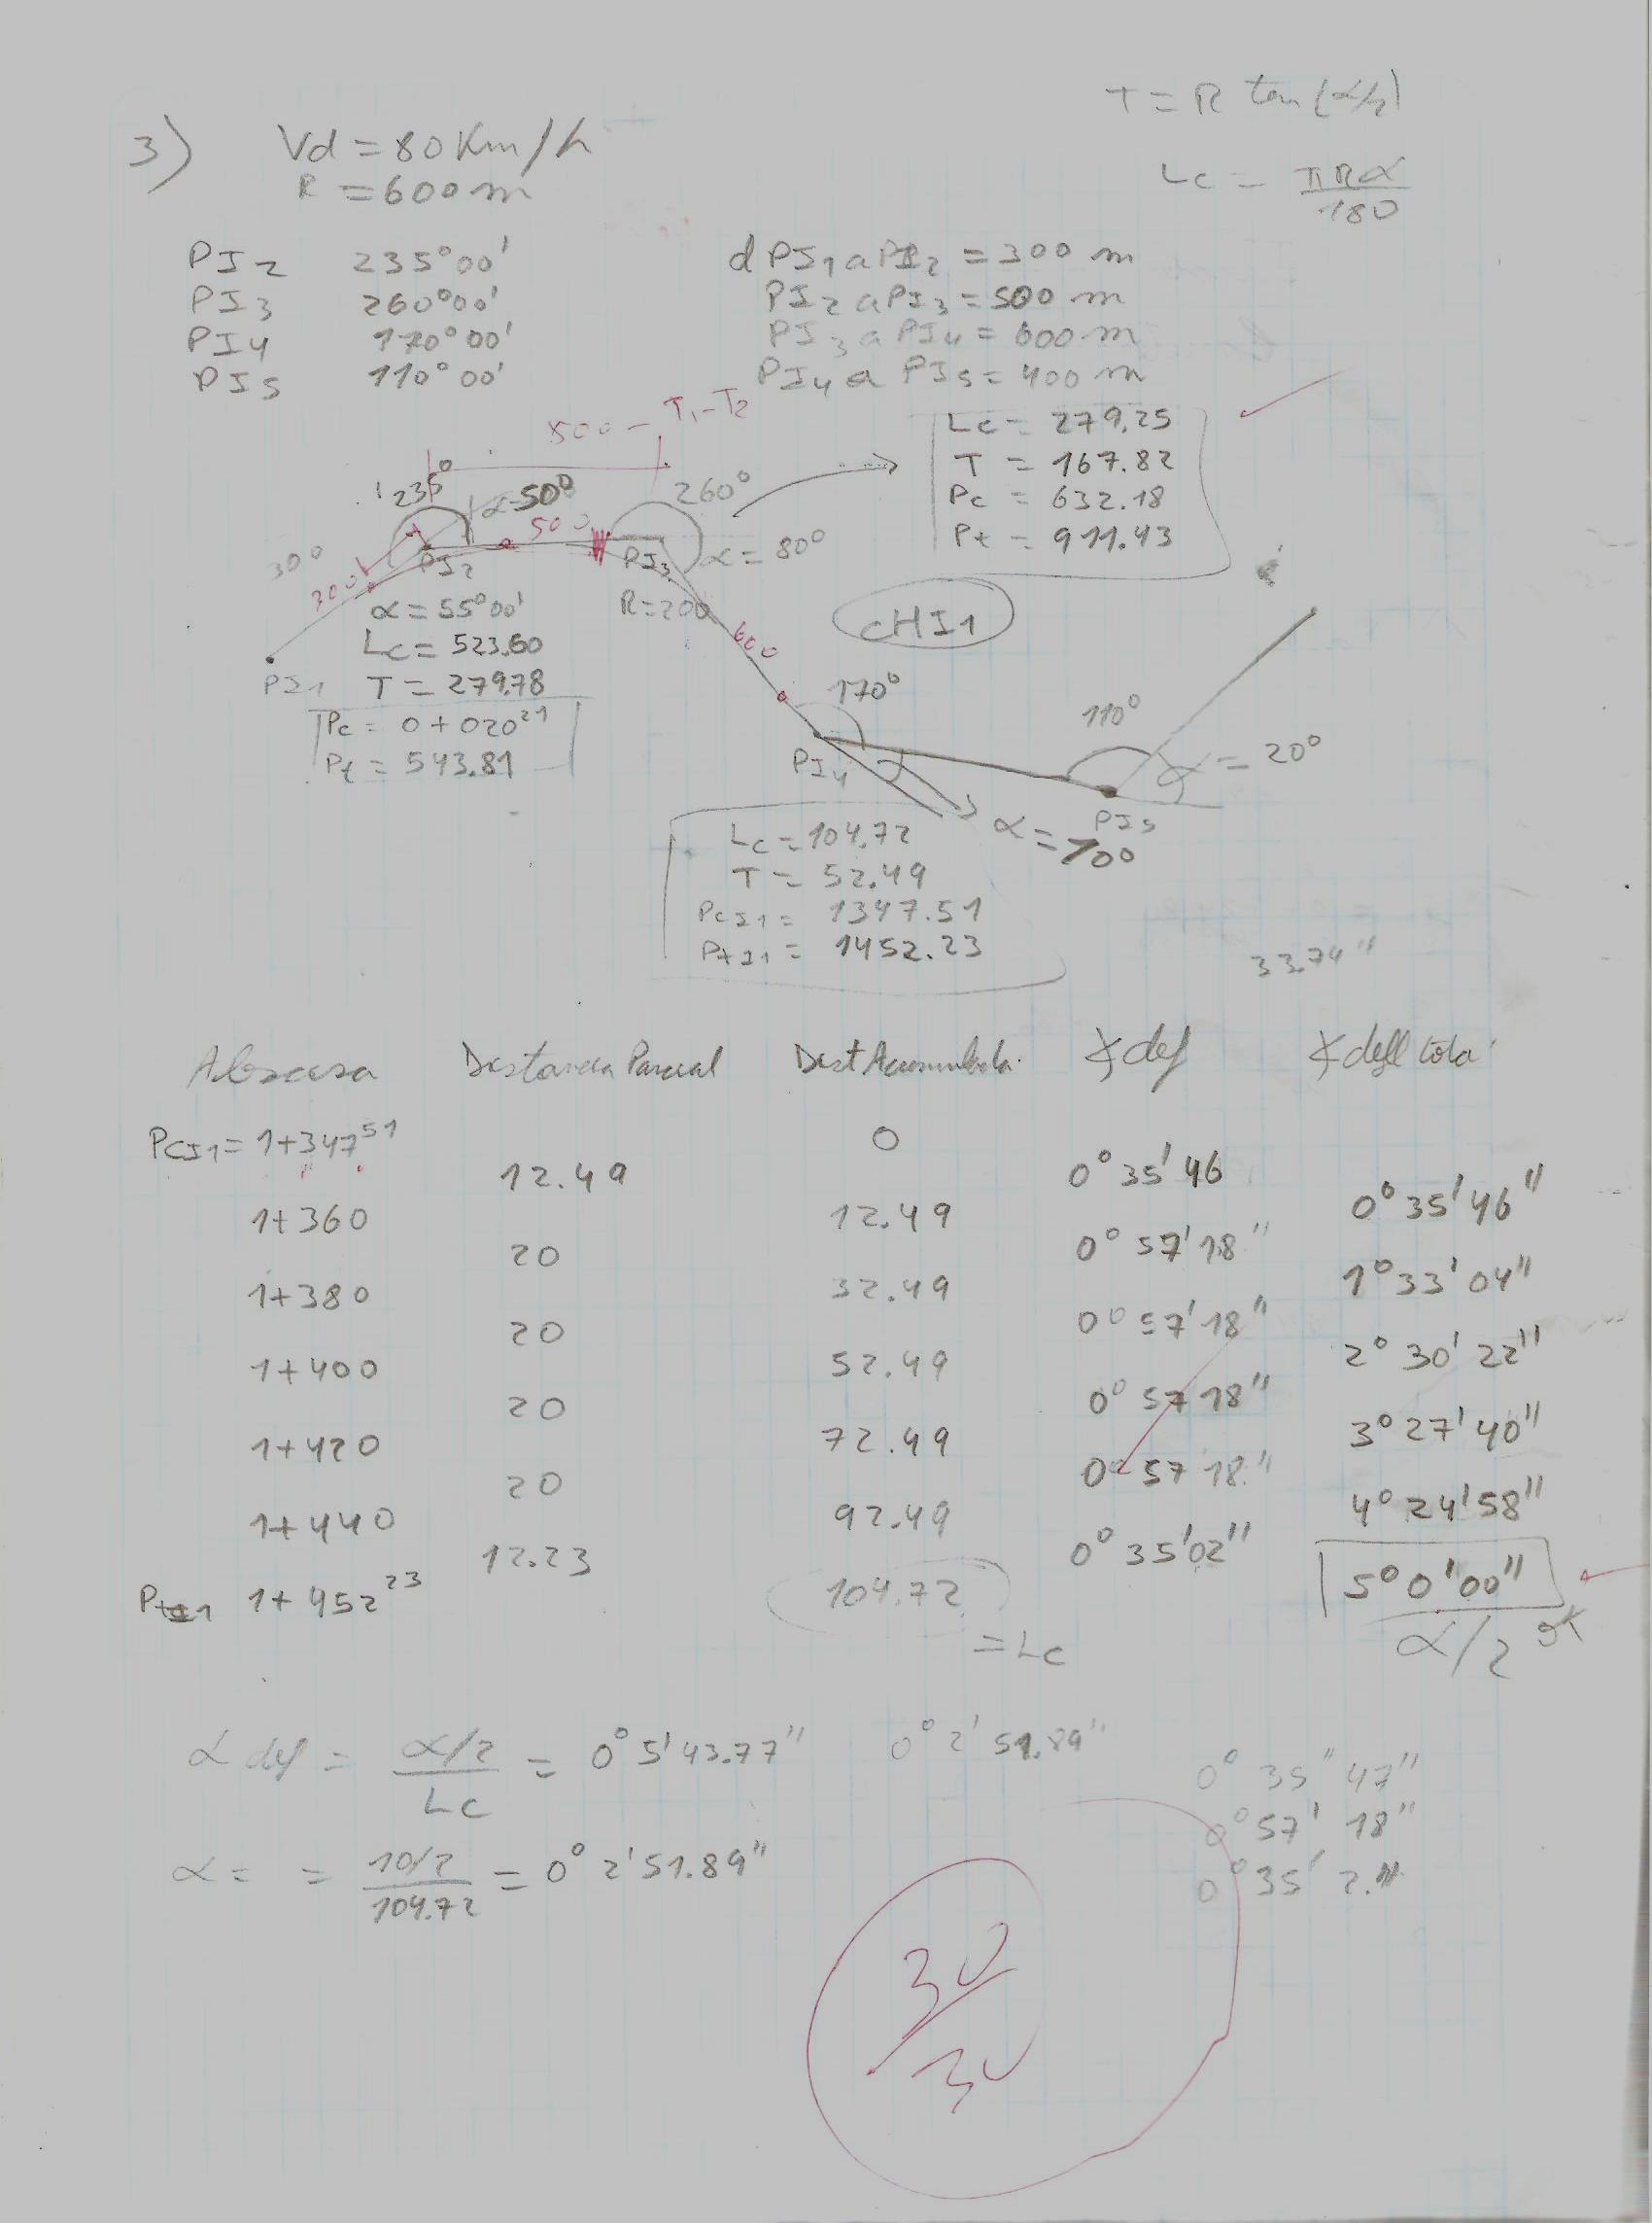 T = R tan(α/2)
3) Vd = 80 Km/h
R = 600 m
Lc = πRα/180
PI2 235°00'
PI3 260°00'
PI4 170°00'
PI5 110°00'
d PI1 a PI2 = 300 m
PI2 a PI3 = 500 m
PI3 a PI4 = 600 m
PI4 a PI5 = 400 m
500 - T1 - T2
Lc = 279.25
T = 167.82
Pc = 632.18
Pt = 911.43
235°
α 50°
500
260°
α = 80°
30°
300
PI2
PI3
R = 200
α = 55°00'
Lc = 523.60
T = 279.78
Pc = 0+020 21
Pt = 543.81
PI1
CHI1
600
170°
110°
α = 20°
PI4
PI5
α = 10°
Lc = 104.72
T = 52.49
PcI1 = 1347.51
PtI1 = 1452.23
33.74"
Abscisa Distancia Parcial Dist Acumulada ∡ def ∡ defl total
PCI1 = 1+347 51 0
12.49 0° 35' 46
1+360 12.49 0° 35' 46"
20 0° 57' 18"
1+380 32.49 1° 33' 04"
20 0° 57' 18"
1+400 52.49 2° 30' 22"
20 0° 57 18"
1+420 72.49 3° 27' 40"
20 0° 57 18"
1+440 92.49 4° 24' 58"
12.23 0° 35' 02"
PtI1 1+452 23 104.72 5° 0' 00"
= Lc α/2 OK
α def = α/2 / Lc = 0° 5' 43.77" 0° 2' 51.89"
0° 35" 47"
0° 57' 18"
α = = 10/2 / 104.72 = 0° 2' 51.89"
0° 35' 2."
30/30